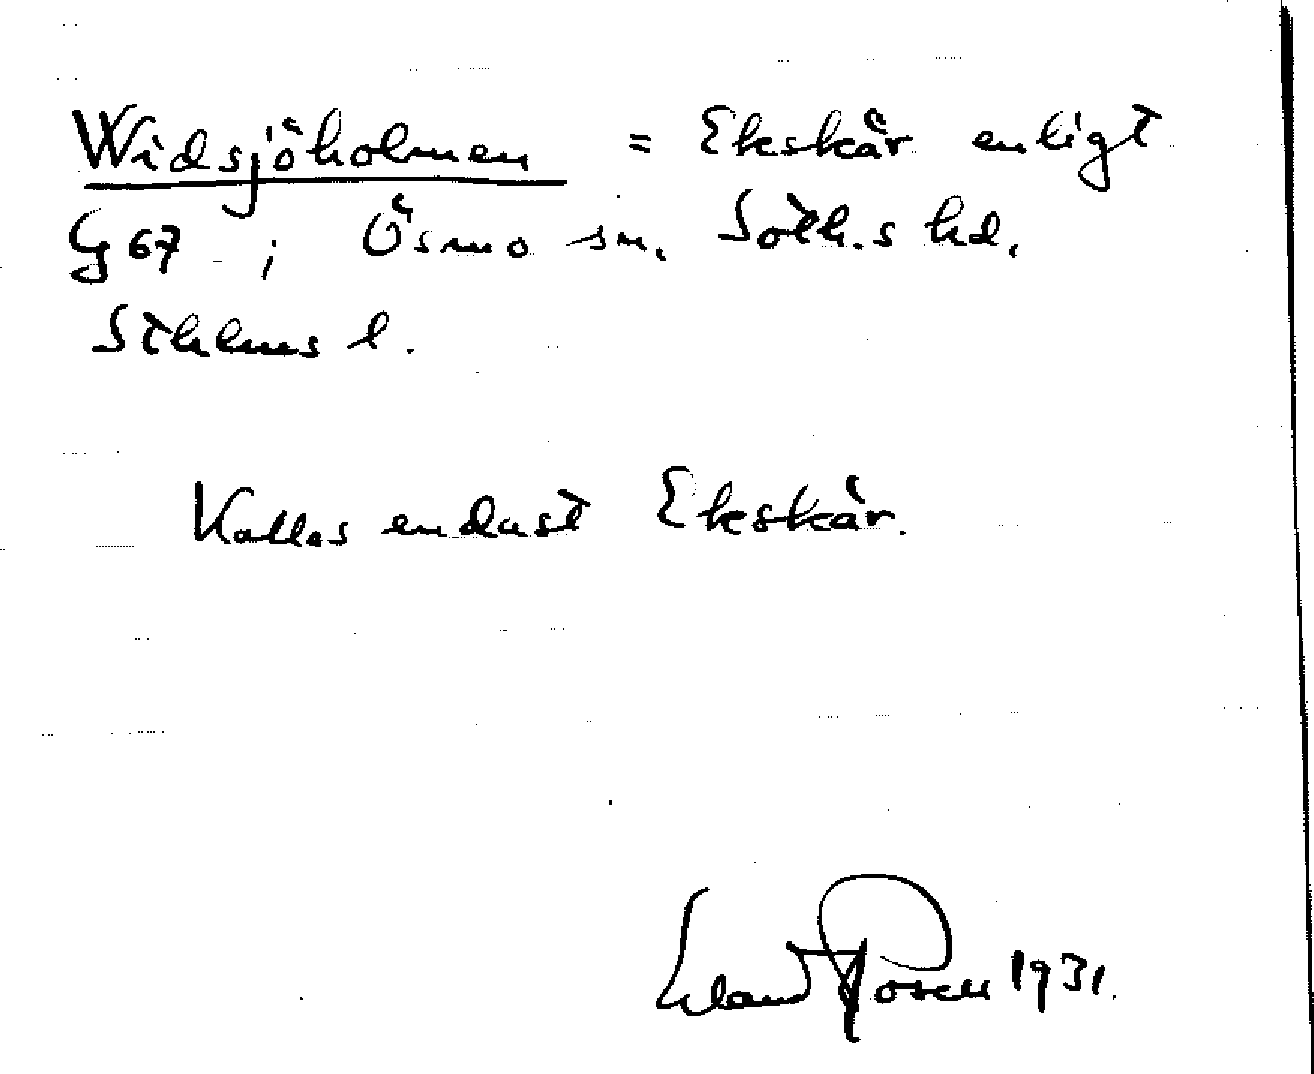 Widsjöholmen = Ekskär enligt
G 67 ; Ösmo sn. Soth.s hd.
Sthlms l.
Kallas endast Ekskär.
Erland Rosell 1931.